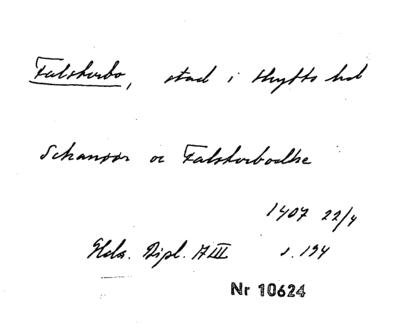 Falsterbo, stad i Skytts hd
Skanör oc Falsterbodhe
1407 22/4
Hda. Dipl. A III s. 194
Nr 10624